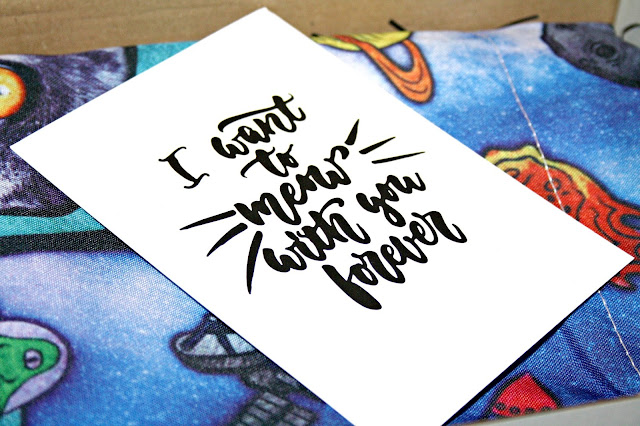 I want
to
meow
with you
forever